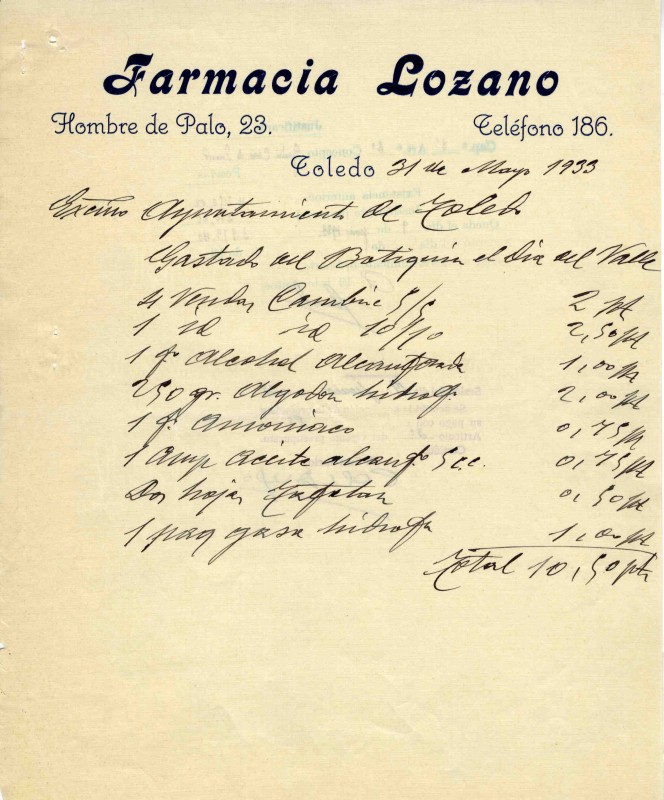 Farmacia Lozano
Hombre de Palo, 23. Teléfono 186.
Toledo 31 de Mayo 1933
Excmo Ayuntamiento de Toledo
Gastado del Botiquin el dia del Valle
4 Vendas Cambric 5/5 2 pt
1 id id 10/10 2,50 pt
1 fo Alcohol Alcanforado 1,00 pt
250 gr. Algodon hidrof 2,00 pt
1 f. Amoniaco 0,75 pt
1 Amp Aceite alcanfo 5 cc. 0,75 pt
Dos hojas Tafetan 0,50 pt
1 paq gasa hidrofa 1,00 pt
Total 10,50 pts